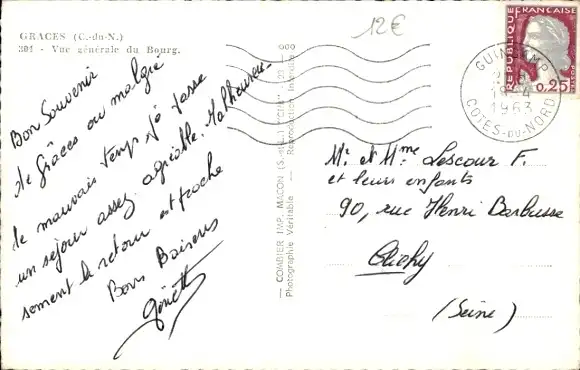 GRACES (C.-du-N.)
304 - Vue générale du Bourg.
12€
Bon Souvenir
de Grâces ou malgré
le mauvais temps je passe
un séjour assez agréable. Malheureu-
sement le retour est proche
Bons Baisers
COMBIER IMP. MACON (S.-et-L.) "CIM"
Photographie Véritable - Reproduction Interdite
REPUBLIQUE FRANÇAISE
0,25
GUINGAMP
1963
COTES-DU-NORD
Mr et Mme Lescour F.
et leurs enfants
90, rue Henri Barbusse
Clichy
(Seine)